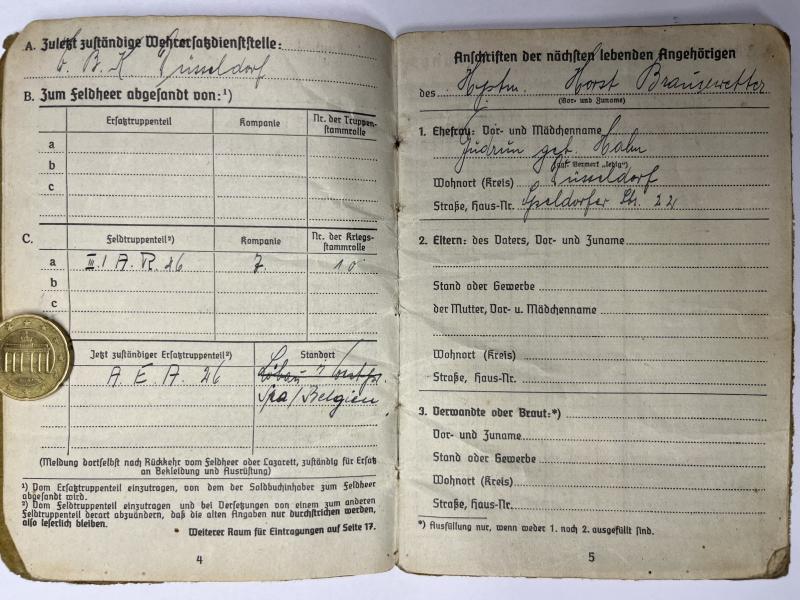 A. Zuletzt zuständige Wehrersatzdienststelle:
W. B. K. Düsseldorf
B. Zum Feldheer abgesandt von:¹)
Ersatztruppenteil
Kompanie
Nr. der Truppen-
stammrolle
a
b
c
C.
Feldtruppenteil²)
Kompanie
Nr. der Kriegs-
stammrolle
a III./ A. R. 26 7. 10
b
c
Jetzt zuständiger Ersatztruppenteil²)
Standort
A. E. A. 26 Löbau i/ Westpr.
Spa/Belgien
(Meldung dortselbst nach Rückkehr vom Feldheer oder Lazarett, zuständig für Ersatz
an Bekleidung und Ausrüstung)
¹) Vom Ersatztruppenteil einzutragen, von dem der Soldbuchinhaber zum Feldheer
abgesandt wird.
²) Vom Feldtruppenteil einzutragen und bei Versetzungen von einem zum anderen
Feldtruppenteil derart abzuändern, daß die alten Angaben nur durchstrichen werden,
also leserlich bleiben.
Weiterer Raum für Eintragungen auf Seite 17.
4
Anschriften der nächsten lebenden Angehörigen
des Hptm. Horst Brausewetter
(Vor- und Zuname)
1. Ehefrau: Vor- und Mädchenname
Gudrun geb. Hahn
(ggf. Vermerk „ledig")
Wohnort (Kreis) Düsseldorf
Straße, Haus-Nr. Str. 22
2. Eltern: des Vaters, Vor- und Zuname
Stand oder Gewerbe
der Mutter, Vor- u. Mädchenname
Wohnort (Kreis)
Straße, Haus-Nr.
3. Verwandte oder Braut:*)
Vor- und Zuname
Stand oder Gewerbe
Wohnort (Kreis)
Straße, Haus-Nr.
*) Ausfüllung nur, wenn weder 1. noch 2. ausgefüllt sind.
5